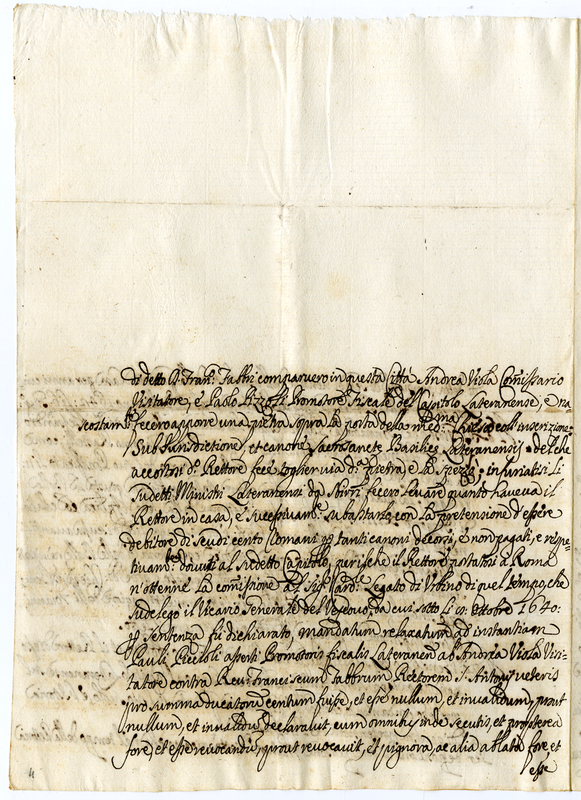 di detto D. Fran: Fabbri comparuero in questa Città Andrea Viola Comissario
Visitatore, e Paolo Pizzoli Promotore Fiscale del Capitolo Lateranense, e na=
scostam.te fecero apporre una pietra sopra la porta della med.ma Chiesa coll'inscrizione=
Sub Iurisdictione, et canone Sacrosancte Basilice Lateranensis= del che
accortosi d.o Rettore fece toglier via d.a pietra e la spezzò: infuriatisi li
sudetti Ministri Lateranensi da sbirri fecero levare quanto haveva il
Rettore in casa, e successivam.e subastare, con la pretensione d'essere
debitore di scudi cento Romani p tanti canoni decorsi, e non pagati, e rispe=
tivam.te dovuti al sudetto Capitolo, perilche il Rettore portatosi à Roma
n'ottenne la comissione al Sig.r Card.le Legato di Urbino di quel tempo, che
sudelegò il Vicario Generale del Vescovo, da cui sotto li Ottobre 1640:
p Sentenza fù dichiarato, mandatum relaxatum ad instantiam
Pauli Piccioli asserti Promotoris fiscalis Lateranen ab Andrea Viola Visi=
tatore contra Reu: Franciscum Fabbrum Rectorem S. Antonij veteris
pro summa ducatorum centum fuisse, et esse nullum, et invalidum, prout
nullum, et invalidum declaravit, cum omnibus inde secutis, et propterea
fore, et esse revocandum, prout revocavit, et pignora, ac alia ablata fore, et
esse
4